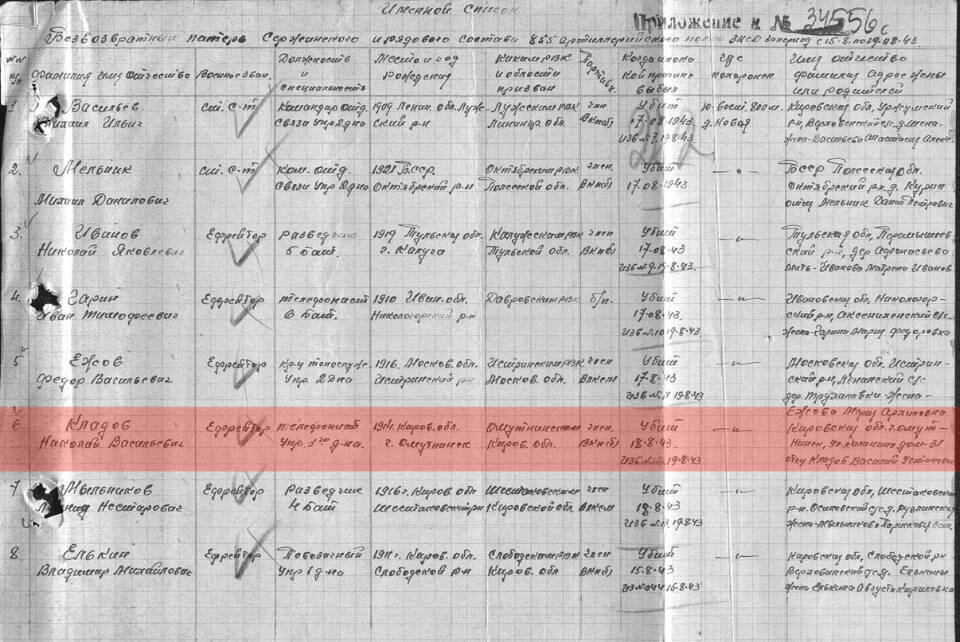 Именной список
Приложение к № 34556с
Безвозвратных потерь Сержанского и рядового состава 855 Артиллерийского полка за период с 15.8. по 19.08.43
№№ п/п
Фамилия имя отчество
Воинск. зван.
Должность и специальность
Место и год рождения
Каким РВК и области призван
Партийн.
Когда и по какой причине выбыл
Где похоронен
Имя отчество фамилия Адрес жены или родителей
1 Васильев Михаил Ильич
ст. с-т
Командир отд. Связи Упр 2 дна
1909 Ленин. обл. Луж-ский р-н
Лужским РВК Ленингр. обл.
член ВКП(б)
Убит 17-08-1943
Ю. вост. 800 м. д. Новая
Кировская обл, Уржумский
2. Мельник Михаил Данилович
ст. с-т
Ком. отд. Связи Упр 2 дна
1921 БССР Октябрский р-н
Октябрским РВК Полесской обл.
член ВКП(б)
Убит 17.08.1943
—„—
БССР Полесская обл. Октябрский р-н, д. Курин отец Мельник Данил Петрович
3. Иванов Николай Яковлевич
Ефрейтор
Разведчик 5 бат.
1919 Тульская обл. г. Калуга
Калужским РВК Тульской обл.
член ВКП(б)
Убит 17-08-43
—„—
Тульская обл,
мать - Иванова Матрена Иванов
4. Гарин Иван Тимофеевич
Ефрейтор
телефонист 6 Бат.
1910 Иван. обл. Навологорский р-н
б/п.
Убит 17-08-43
—„—
Ивановская обл,
жена - Гарина Мария Федоровна
5 Ежов Федор Васильевич
Ефрейтор
Упр. 2 дна
1916. Москов. обл. Истринский р-н
Истринским РВК Москов. обл.
член ВЛКСМ
Убит 17-8-43
—„—
Московская обл. Истрин-ский р-н, Ленинский с/с дер. Трухаловка жена - Ежова Мария Архиповна
6 Кладов Николай Васильевич
Ефрейтор
телефонист Упр. 1го д-на.
1914. Киров. обл. г. Омутнинск
Омутнинским Киров. обл.
член ВКП(б)
Убит 18-8-43.
—„—
Кировская обл. г. Омут-нинск, ул Калинина дом-31 отец Кладов Василий Устинович
7 Мыльников Нестерович
Ефрейтор
Разведчик 4 бат
1916 г. Киров обл Шестаковский р-н
Шестаковским Кировской обл.
член ВЛКСМ
Убит 18-8-43
—„—
Кировская обл, Шестаковский р-н.
8 Елькин Владимир Михайлович
Ефрейтор
Повозочный Упр 1 д-на
1911 г. Киров. обл. Слободской р-н
Слободским РВК Киров. обл
член ВКП(б)
Убит 15.8-43
—„—
Кировская обл, Слободской р-н
жена Елькина Августа Кириловна